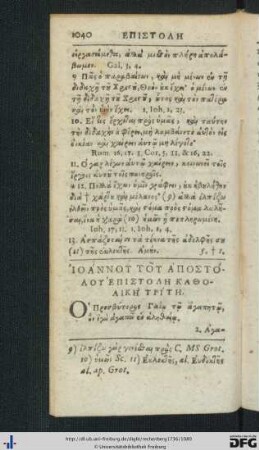 1040 ΕΠΙΣΤΟΛΗ
εἰργασάμεθα, ἀλλὰ μισθὸν πλήρη ἀπολά-
βωμεν. Gal. 3, 4.
9 Πᾶς ὁ παραβαίνων, καὶ μὴ μένων ἐν τῇ
διδαχῇ τοῦ Χριστοῦ, Θεὸν οὐκ ἔχει· ὁ μένων ἐν
τῇ διδαχῇ τοῦ Χριστοῦ, οὗτος καὶ τὸν πατέρα
καὶ τὸν υἱὸν ἔχει. 1, Ioh. 2, 23.
10. Εἴ τις ἔρχεται πρὸς ὑμᾶς, καὶ ταύτην
τὴν διδαχὴν οὐ φέρει, μὴ λαμβάνετε αὐτὸν εἰς
οἰκίαν καὶ χαίρειν αὐτῷ μὴ λέγετε·
Rom. 16, 17. 1, Cor. 5, 11. & 16, 22.
11. Ὁ γὰρ λέγων αὐτῷ χαίρειν, κοινωνεῖ τοῖς
ἔργοις αὐτοῦ τοῖς πονηροῖς.
12. Πολλὰ ἔχων ὑμῖν γράφειν, οὐκ ἠβουλήθην
διὰ χάρτου καὶ μέλανος· (9) ἀλλὰ ἐλπίζω
ἐλθεῖν πρὸς ὑμᾶς, καὶ στόμα πρὸς στόμα λαλῆ-
σαι, ἵνα ἡ χαρὰ (10) ἡμῶν ᾖ πεπληρωμένη.
Ioh. 17, 13. 1, Ioh. 1, 4.
13. Ἀσπάζεταί σε τὰ τέκνα τῆς ἀδελφῆς σου
(11) τῆς ἐκλεκτῆς. Ἀμήν.
ἸΩΑΝΝΟΥ ΤΟΥ ΑΠΟΣΤΟ-
ΛΟΥ ἘΠΙΣΤΟΛΗ ΚΑΘΟ-
ΛΙΚΗ ΤΡΙΤΗ.
Ὁ Πρεσβύτερος Γαΐῳ τῷ ἀγαπητῷ,
ὃν ἐγὼ ἀγαπῶ ἐν ἀληθείᾳ.
2. Ἀγα-
9) ἐλπίζω γὰρ γενέσθαι πρὸς C. MS Grot.
10) ὑμῶν Sc. 11) Ἐκλεκτῆς, al. Εὐδέκτης
al. ap. Grot.
http://digital.ub.tu-freiberg.de/
© Universitätsbibliothek Freiberg
gefördert von der
DFG